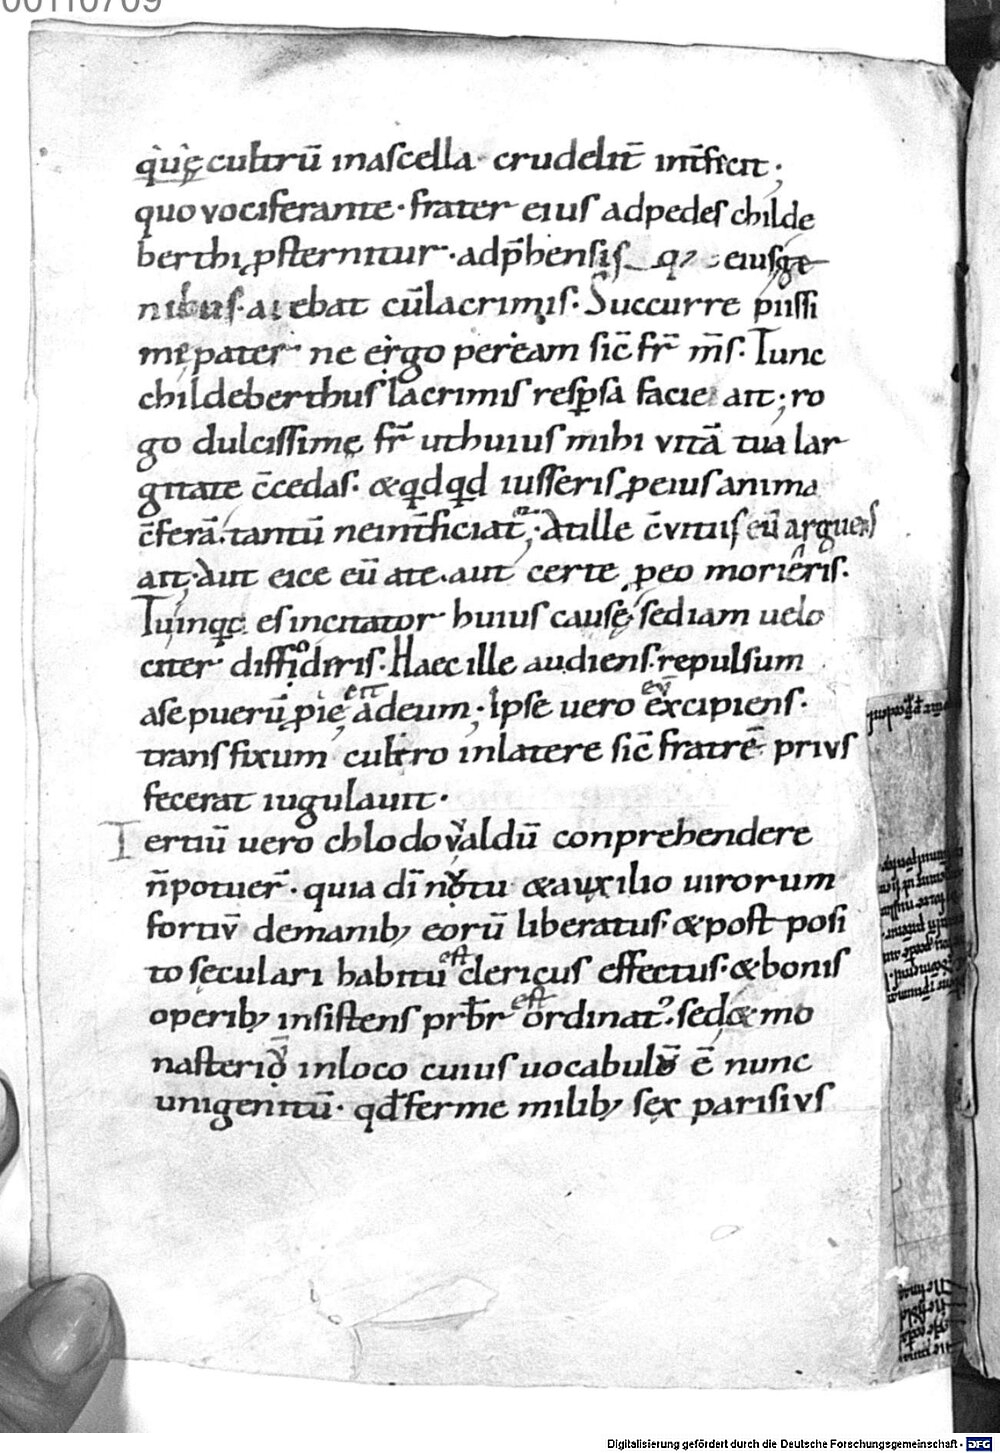 00110709
q̇uȩ cultrū inascella· crudelit̄ int̄ficit;
quo vociferante· frater eius ad pedes childe
berthi ꝓsternitur· adp̄hensis q; eius ge
nibus· aiebat cū lacrimis· Succurre piissi
me pater· ne ergo peream sic̄ fr̄ m̄s· Tunc
childeberthus lacrimis resꝑsa facie ait; ro
go dulcissime fr̄ ut huius mihi vitā tua lar
gitate c̄cedas· & qd qd iusseris ꝓ eius anima
c̄ferā· tantū ne int̄ficiat᷑· At ille c̄vitiis eū arguens
ait· Aut eice eū a te· aut certe ꝓ eo morieris·
Tu inqd es incitator huius causę· sed iam uelo
citer diffideris· Haec ille audiens· repulsum
a se puerū ꝓiec̄ ad eum; Ipse uero excipiens·
transfixum cultro in latere sic̄ fratrē privs
fecerat iugulauit·
Tertiū uero chlodovaldū conprehendere
n̄ potuer̄· quia dī notu & auxilio uirorum
fortiv̄ de manib; eorū liberatus· & post posi
to seculari habitu est clericus effectus· & bonis
operib; insistens prb̄r est ordinat᷒· sed & mo
nasterio in loco cuius uocabulū ē nunc
unigentū· qd̄ ferme milib; sex parisivs
Digitalisierung gefördert durch die Deutsche Forschungsgemeinschaft - DFG